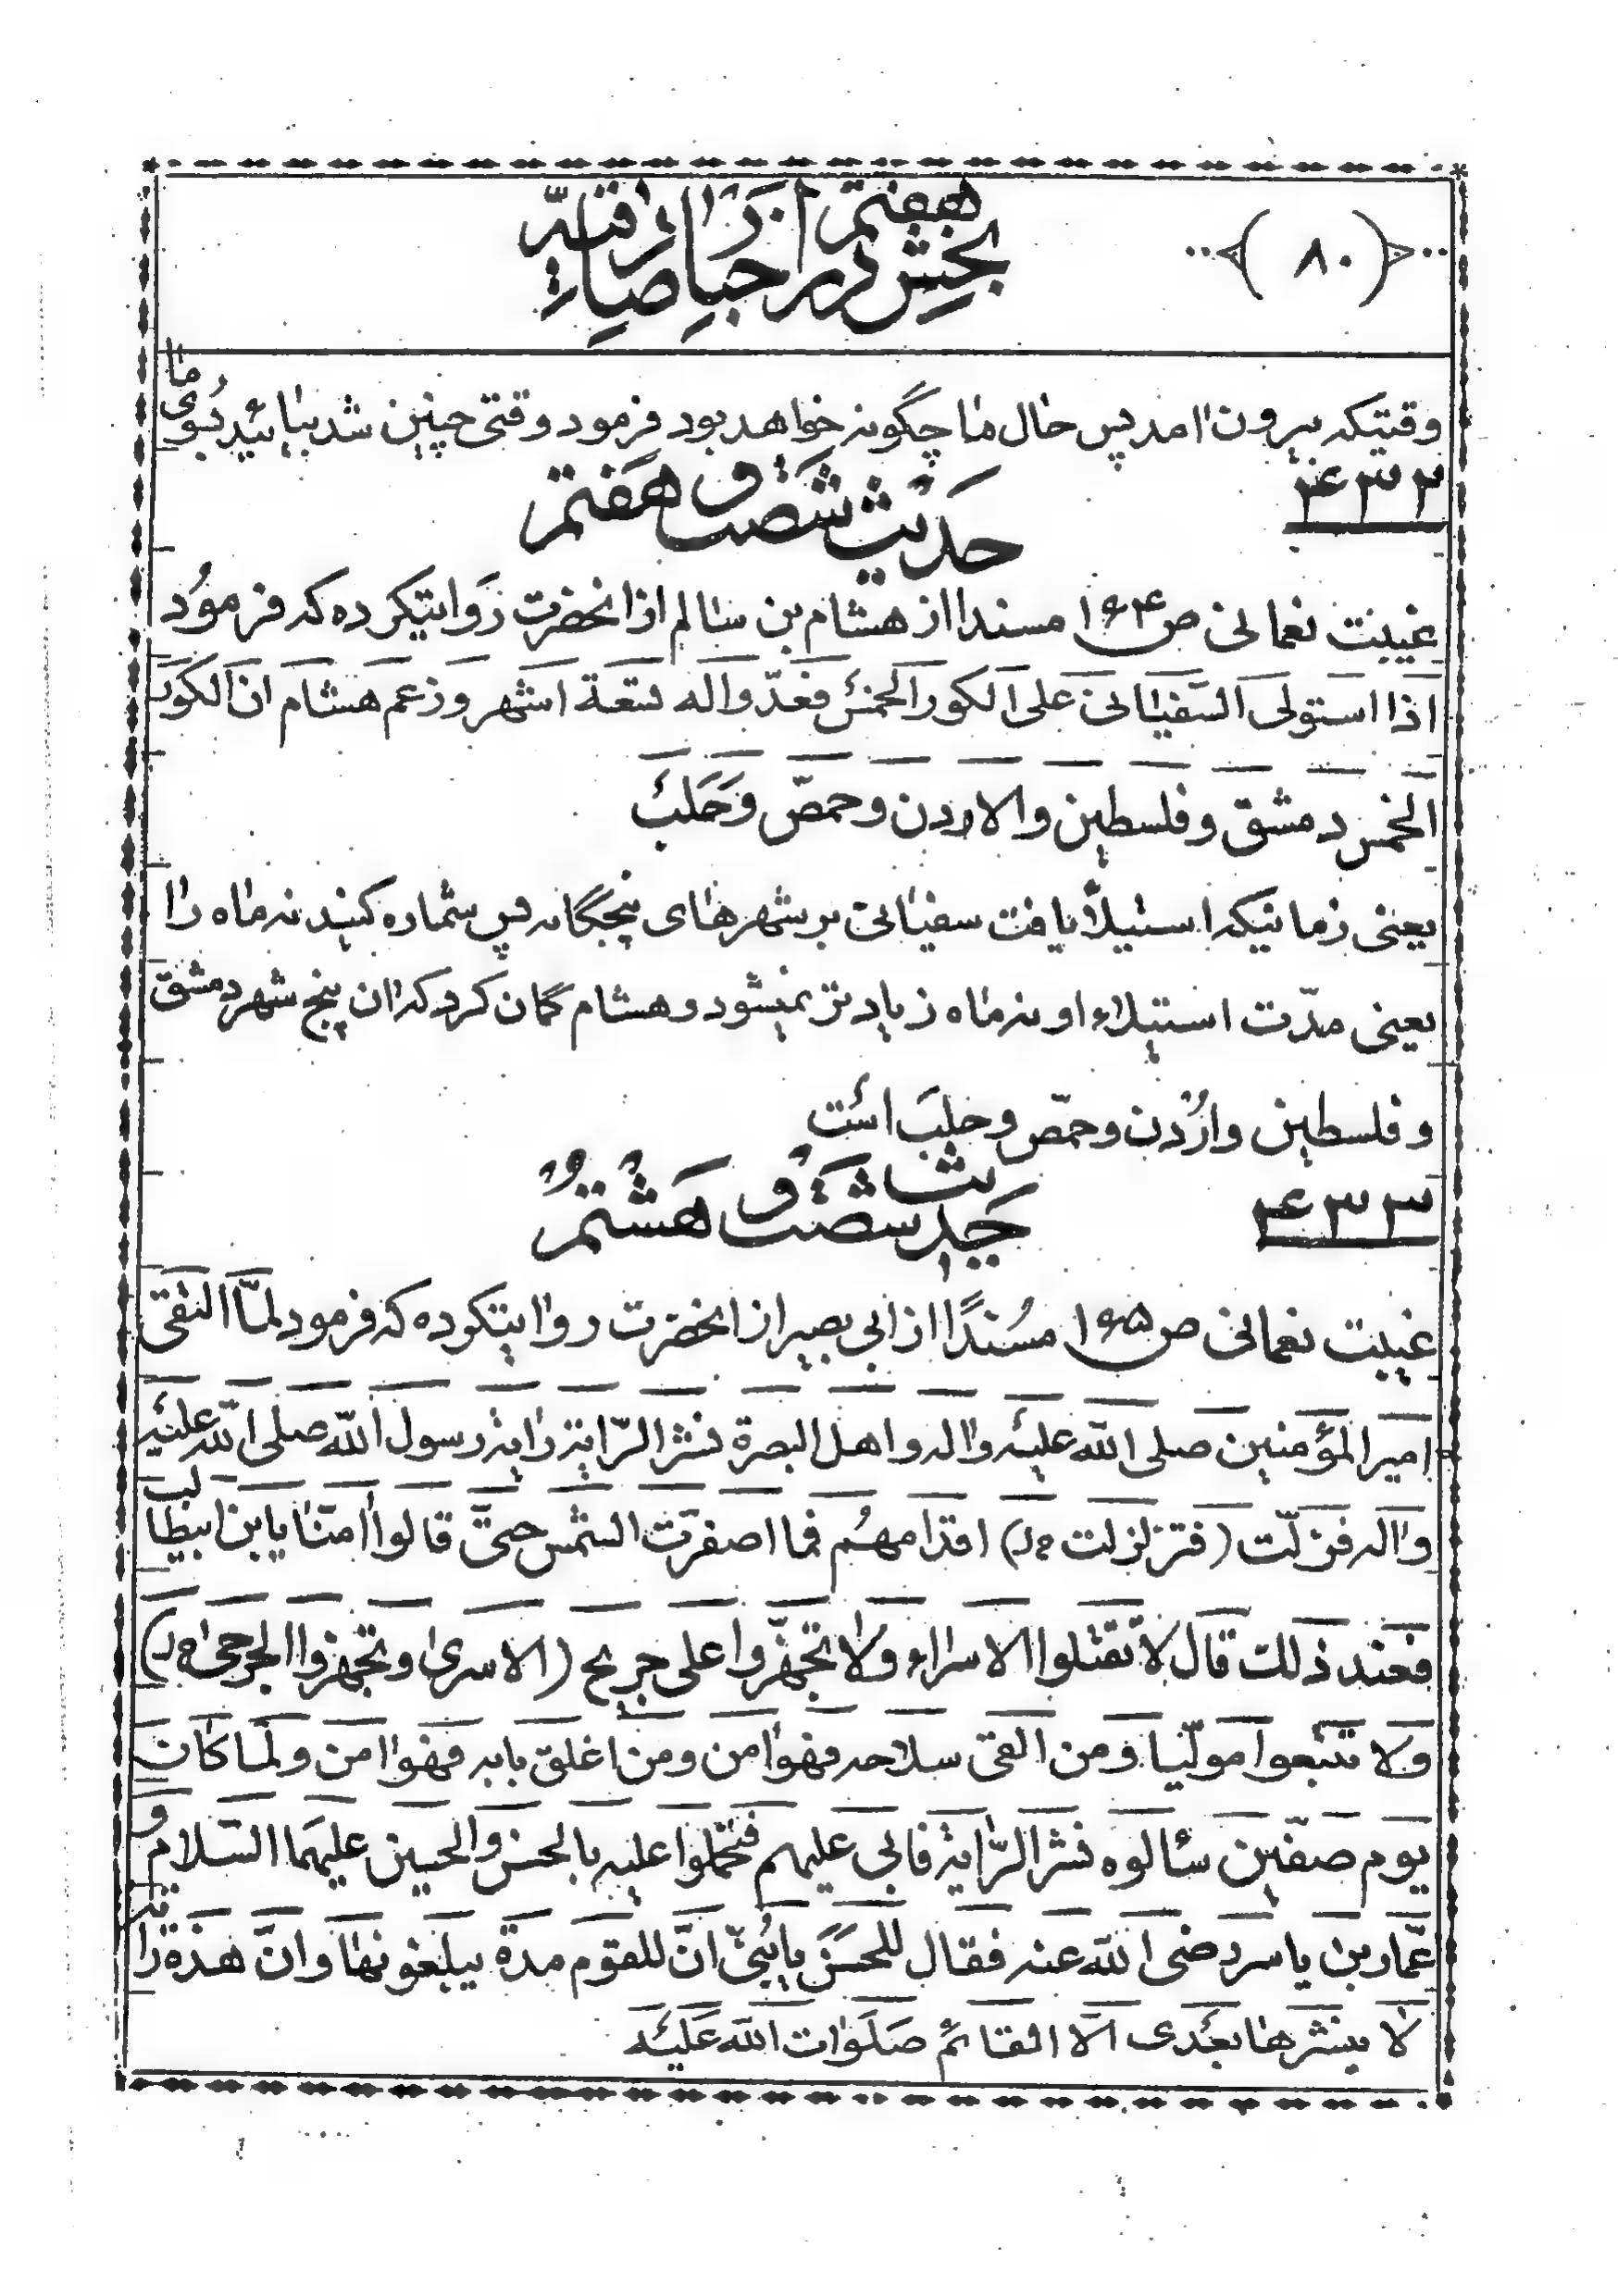 (۸۰)
بخش هفتم از جزء اول در اخبار صادقیه
وقتیکه بیرون امد پس حال ما چگونه خواهد بود فرمود وقتی چنین شد بیائید بسوی ما
۴۳۲
حدیث شصت و هفتم
غیبت نعمانی ص۱۶۴ مسندا از هشام بن سالم از انحضرت روایتکرده که فرمود
اذا استولی السفیانی علی الکور الخمس فعدّوا له تسعة اشهر و زعم هشام ان الکور
الخمس دمشق و فلسطین و الاردن و حمص و حلب
یعنی زمانیکه استیلا یافت سفیانی بر شهرهای پنجگانه پس شماره کنید نه ماه را
یعنی مدّت استیلاء او نه ماه زیادتر نمیشود و هشام گمان کرد که ان پنج شهر دمشق
و فلسطین و اردن و حمص و حلب است
۴۳۳
حدیث شصت و هشتم
غیبت نعمانی ص۱۶۵ مسندًا از ابی بصیر از انحضرت روایتکرده که فرمود لمّا التقی
امیر المؤمنین صلی الله علیه و اله و اهل البصرة نشر الرّایة رایة رسول الله صلی الله علیه
و اله فزلّت (فتزلزلت خ‌د) اقدامهم فما اصفرّت الشمس حتّی قالوا امنّا یابن ابیطالب
فعند ذلک قال لا تقتلوا الاسراء و لا تجهّزوا علی جریح (الاسری و تجهزوا الجرحی خ‌د)
و لا تتبعوا مولّیا و من القی سلاحه فهو امن و من اغلق بابه فهو امن و لمّا کان
یوم صفّین سئالوه نشر الرّایة فابی علیهم فتحمّلوا علیه بالحسن و الحسین علیهما السّلام و
عمّار بن یاسر رضی الله عنه فقال للحسن یا بُنیّ انّ للقوم مدة یبلغونها و انّ هذه رایة
لا ینشرها بعدی الّا القائم صلوات الله علیه